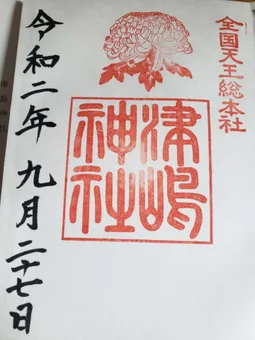 全国天王総本社
津嶋
神社
令和二年九月二十七日